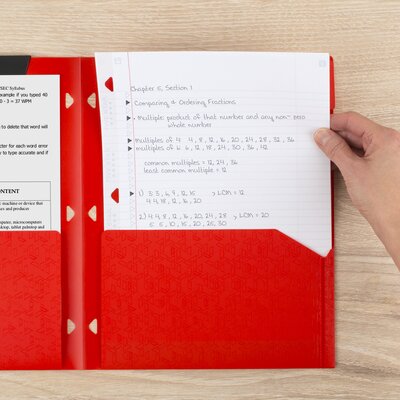 SEC Syllabus
example if you typed 40
0 - 3 = 37 WPM
to delete that word will
for each word error
r to type accurate and if
ONTENT
machine or device that
es and produces
mputer, microcomputers
ktop, tablet palmtop and
Chapter 5, Section 1
Comparing & Ordering Fractions
Multiple: product of that number and any non-zero
whole number
Multiples of 4: 4, 8, 12, 16, 20, 24, 28, 32, 36
multiples of 6: 6, 12, 18, 24, 30, 36, 42
common multiples = 12, 24, 36
least common multiple = 12
1) 3: 3, 6, 9, 12, 15 > LCM = 12
4: 4, 8, 12, 16, 20
2) 4: 4, 8, 12, 16, 20, 24, 28 > LCM = 20
5: 5, 10, 15, 20, 25, 30